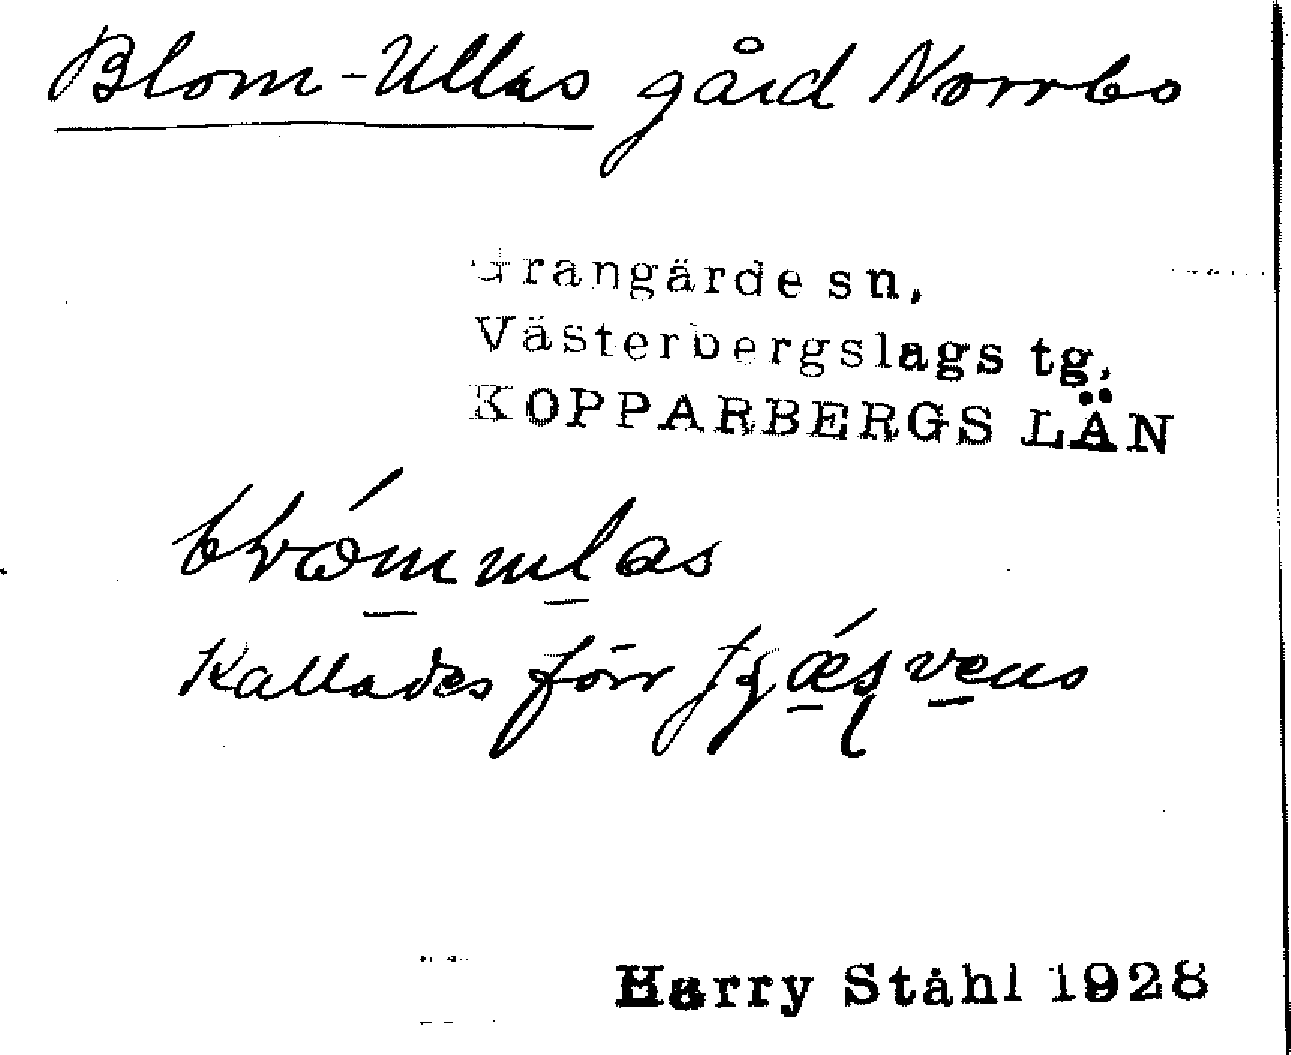 Blom-Ullas gård Norrbo
Grangärde sn,
Västerbergslags tg.
KOPPARBERGS LÄN
Kallades förr
Harry Ståhl 1928